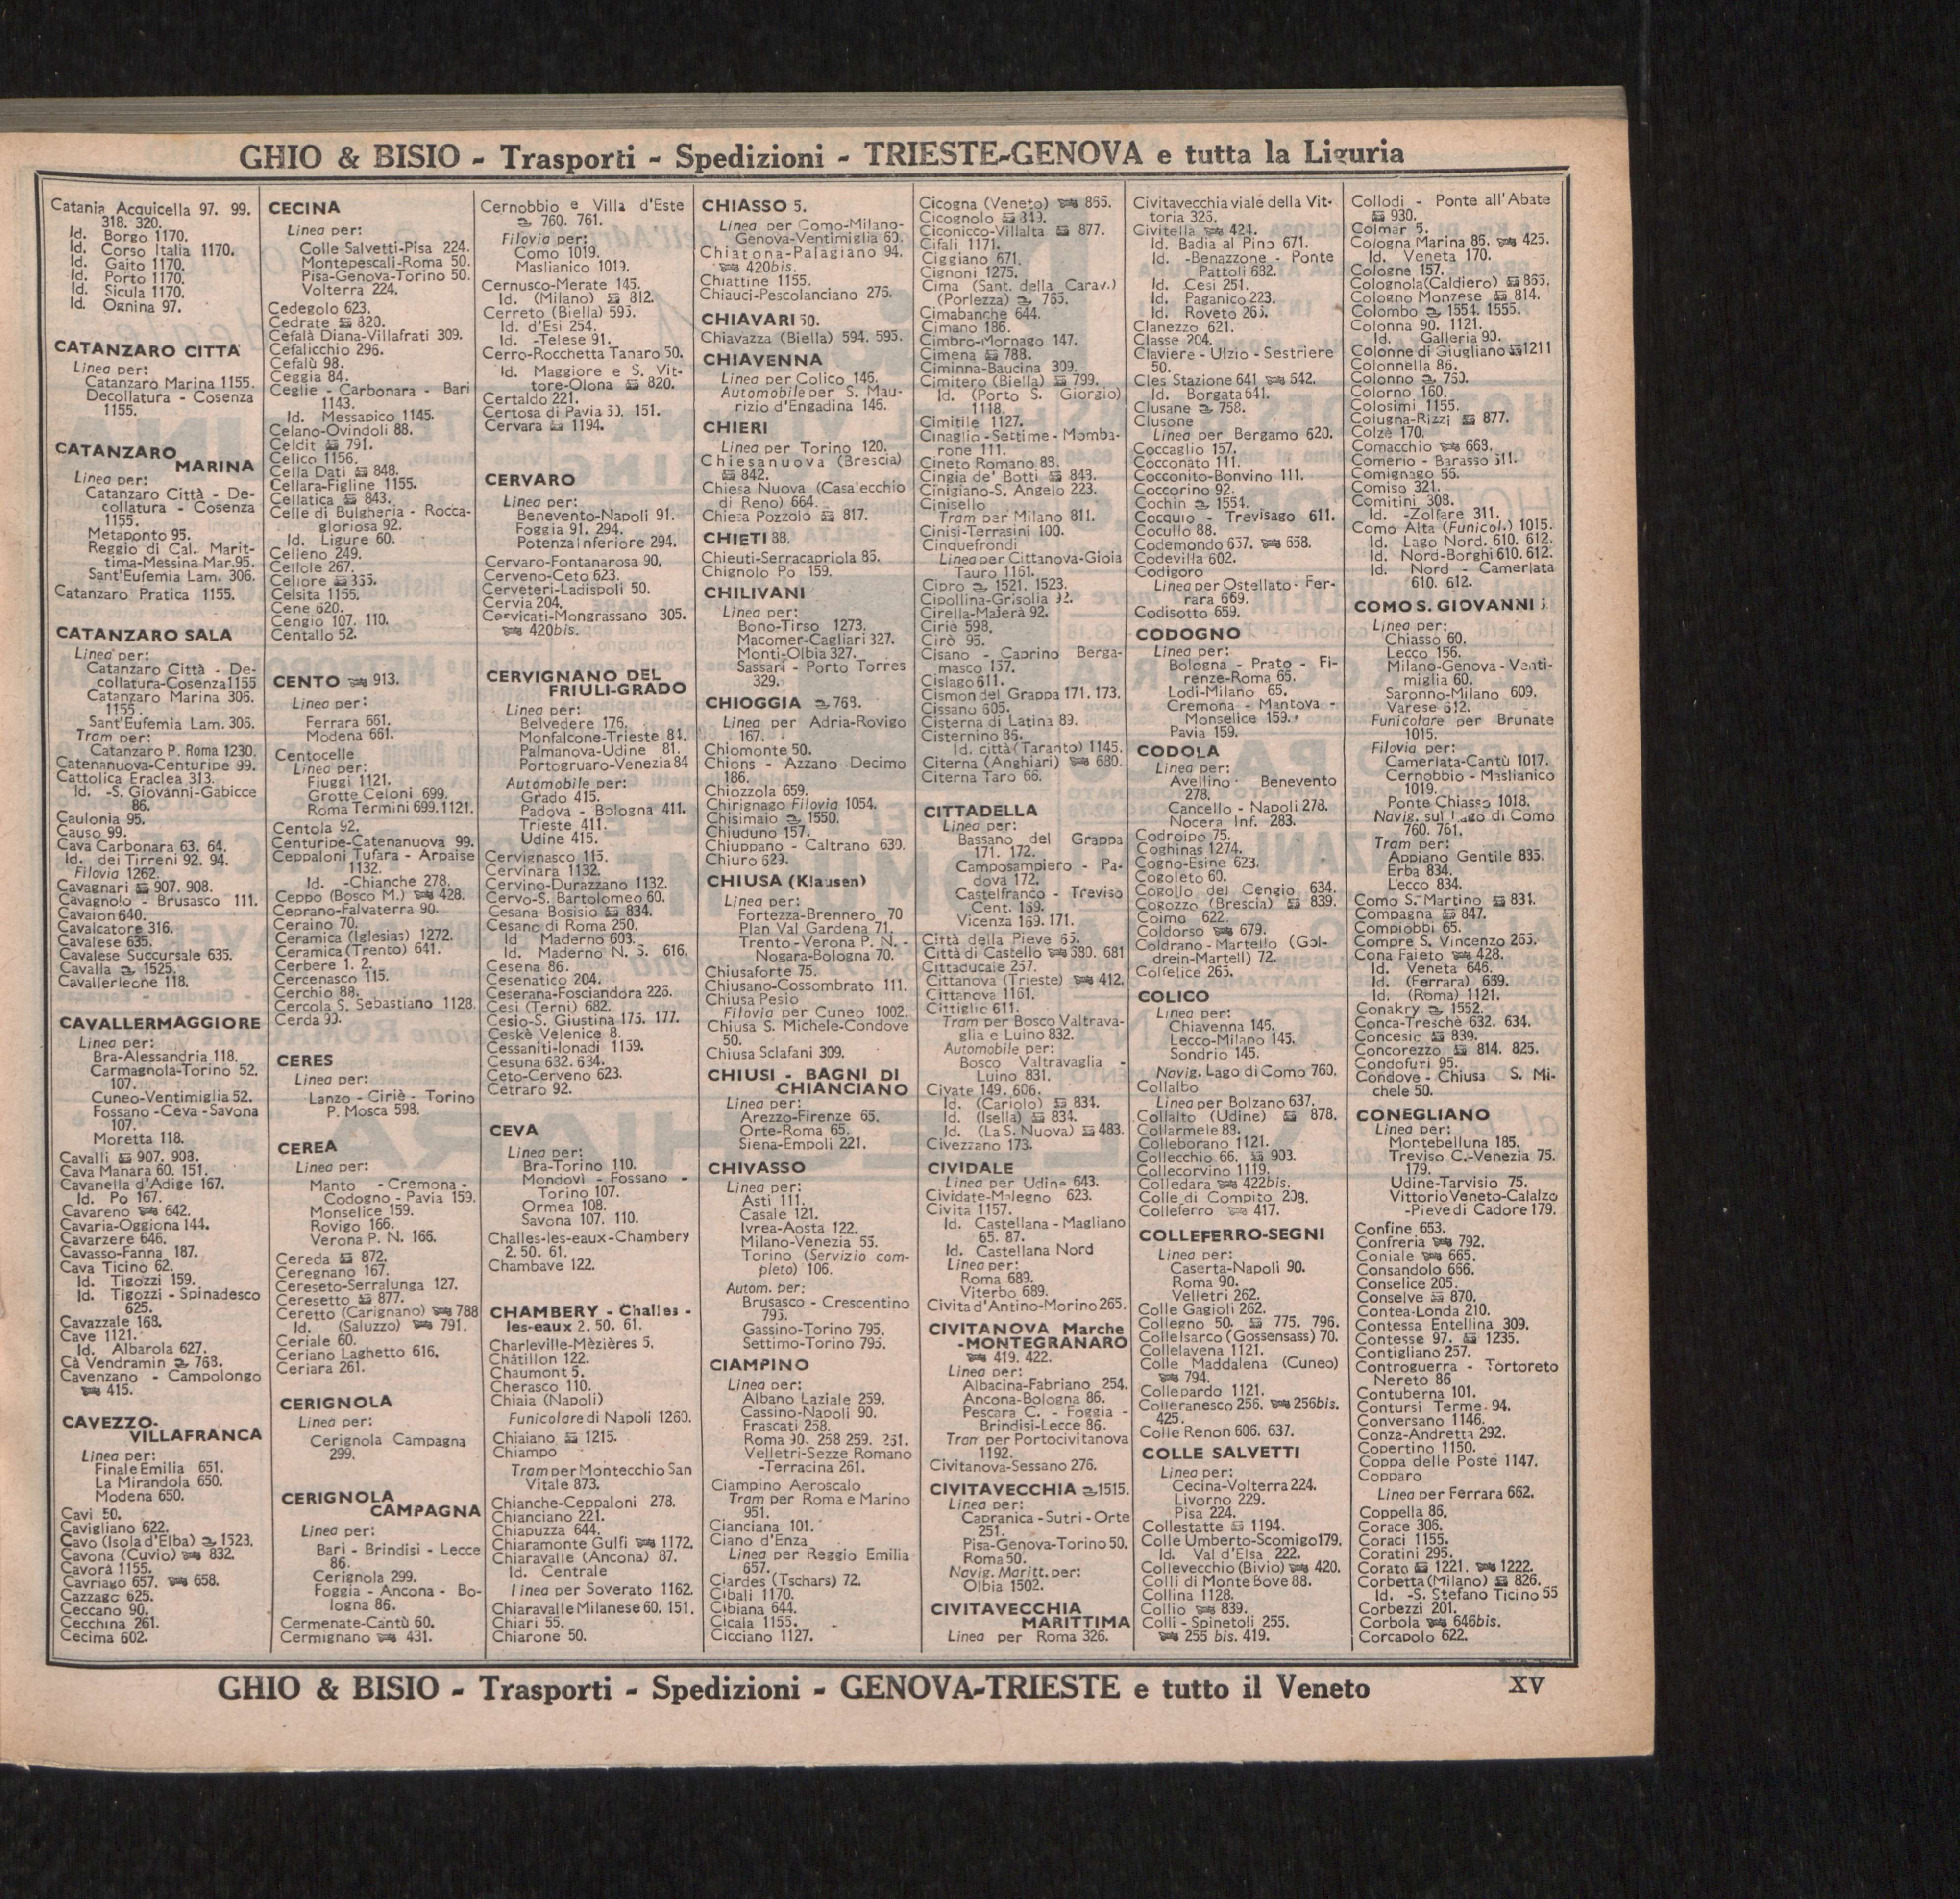 GHIO & BISIO - Trasporti - Spedizioni - TRIESTE-GENOVA e tutta la Liguria
Catania Acquicella 97. 99.
318. 320.
Id. Borgo 1170.
Id. Corso Italia 1170.
Id. Gaito 1170.
Id. Porto 1170.
Id. Sicula 1170.
Id. Ognina 97.
CATANZARO CITTÀ
Linea per:
Catanzaro Marina 1155.
Decollatura - Cosenza
1155.
CATANZARO
MARINA
Linea per:
Catanzaro Città - De-
collatura - Cosenza
1155.
Metaponto 95.
Reggio di Cal. Marit-
tima-Messina Mar. 95.
Sant'Eufemia Lam. 306.
Catanzaro Pratica 1155.
CATANZARO SALA
Linea per:
Catanzaro Città - De-
collatura-Cosenza 1155
Catanzaro Marina 306.
1155.
Sant'Eufemia Lam. 306.
Tram per:
Catanzaro P. Roma 1230.
Catenanuova-Centuripe 99.
Cattolica Eraclea 313.
Id. -S. Giovanni-Gabicce
86.
Caulonia 95.
Causo 99.
Cava Carbonara 63. 64.
Id. dei Tirreni 92. 94.
Filovia 1262.
Cavagnari 907. 908.
Cavagnolo - Brusasco 111.
Cavaion 640.
Cavalcatore 316.
Cavalese 635.
Cavalese Succursale 635.
Cavalla 1525.
Cavallerleone 118.
CAVALLERMAGGIORE
Linea per:
Bra-Alessandria 118.
Carmagnola-Torino 52.
107.
Cuneo-Ventimiglia 52.
Fossano - Ceva - Savona
107.
Moretta 118.
Cavalli 907. 908.
Cava Manara 60. 151.
Cavanella d'Adige 167.
Id. Po 167.
Cavareno 642.
Cavaria-Oggiona 144.
Cavarzere 646.
Cavasso-Fanna 187.
Cava Ticino 62.
Id. Tigozzi 159.
Id. Tigozzi - Spinadesco
625.
Cavazzale 168.
Cave 1121.
Id. Albarola 627.
Cà Vendramin 768.
Cavenzano - Campolongo
415.
CAVEZZO-
VILLAFRANCA
Linea per:
Finale Emilia 651.
La Mirandola 650.
Modena 650.
Cavi 50.
Cavigliano 622.
Cavo (Isola d'Elba) 1523.
Cavona (Cuvio) 832.
Cavorà 1155.
Cavriago 657. 658.
Cazzago 625.
Ceccano 90.
Cecchina 261.
Cecima 602.
CECINA
Linea per:
Colle Salvetti-Pisa 224.
Montepescali-Roma 50.
Pisa-Genova-Torino 50.
Volterra 224.
Cedegolo 623.
Cedrate 820.
Cefalà Diana-Villafrati 309.
Cefalicchio 296.
Cefalù 98.
Ceggia 84.
Ceglie - Carbonara - Bari
1143.
Id. Messapico 1145.
Celano-Ovindoli 88.
Celdit 791.
Celico 1156.
Cella Dati 848.
Cellara-Figline 1155.
Cellatica 843.
Celle di Bulgheria - Rocca-
gloriosa 92.
Id. Ligure 60.
Celleno 249.
Cellole 267.
Cellore
Celsita 1155.
Cene 620.
Cengio 107. 110.
Centallo 52.
CENTO 913.
Linea per:
Ferrara 661.
Modena 661.
Centocelle
Linea per:
Fiuggi 1121.
Grotte Celoni 699.
Roma Termini 699. 1121.
Centola 92.
Centuripe-Catenanuova 99.
Ceppaloni Tufara - Arpaise
1132.
Id. -Chianche 278.
Ceppo (Bosco M.) 428.
Ceprano-Falvaterra 90.
Ceraino 70.
Ceramica (Iglesias) 1272.
Ceramica (Trento) 641.
Cerbere 1. 2.
Cercenasco 115.
Cerchio 88.
Cercola S. Sebastiano 1128.
Cerda 99.
CERES
Linea per:
Lanzo - Ciriè - Torino
P. Mosca 598.
CEREA
Linea per:
Manto - Cremona -
Codogno - Pavia 159.
Monselice 159.
Rovigo 166.
Verona P. N. 166.
Cereda 872.
Ceregnano 167.
Cereseto-Serralunga 127.
Ceresetto 877.
Ceretto (Carignano) 788
Id. (Saluzzo) 791.
Ceriale 60.
Ceriano Laghetto 616.
Ceriara 261.
CERIGNOLA
Linea per:
Cerignola Campagna
299.
CERIGNOLA
CAMPAGNA
Linea per:
Bari - Brindisi - Lecce
86.
Cerignola 299.
Foggia - Ancona - Bo-
logna 86.
Cermenate-Cantù 60.
Cermignano 431.
Cernobbio e Villa d'Este
760. 761.
Filovia per:
Como 1019.
Maslianico 1019.
Cernusco-Merate 145.
Id. (Milano) 812.
Cerreto (Biella) 595.
Id. d'Esi 254.
Id. -Telese 91.
Cerro-Rocchetta Tanaro 50.
Id. Maggiore e S. Vit-
tore-Olona 820.
Certaldo 221.
Certosa di Pavia 60. 151.
Cervara 1194.
CERVARO
Linea per:
Benevento-Napoli 91.
Foggia 91. 294.
Potenza Inferiore 294.
Cervaro-Fontanarosa 90.
Cerveno-Ceto 623.
Cerveteri-Ladispoli 50.
Cervia 204.
Cervicati-Mongrassano 305.
420bis.
CERVIGNANO DEL
FRIULI-GRADO
Linea per:
Belvedere 176.
Monfalcone-Trieste 84.
Palmanova-Udine 81.
Portogruaro-Venezia 84
Automobile per:
Grado 415.
Padova - Bologna 411.
Trieste 411.
Udine 415.
Cervignasco 115.
Cervinara 1132.
Cervino-Durazzano 1132.
Cervo-S. Bartolomeo 60.
Cesana Bosisio 834.
Cesano di Roma 250.
Id Maderno 603.
Id. Maderno N. S. 616.
Cesena 86.
Cesenatico 204.
Ceserana-Fosciandora 226.
Cesi (Terni) 682.
Cesio-S. Giustina 175. 177.
Ceskè Velenice 8.
Cessaniti-Ionadi 1159.
Cesuna 632. 634.
Ceto-Cerveno 623.
Cetraro 92.
CEVA
Linea per:
Bra-Torino 110.
Mondovì - Fossano -
Torino 107.
Ormea 108.
Savona 107. 110.
Challes-les-eaux-Chambery
2. 50. 61.
Chambave 122.
CHAMBERY - Challes -
les-eaux 2. 50. 61.
Charleville-Mèzières 5.
Châtillon 122.
Chaumont 5.
Cherasco 110.
Chiaia (Napoli)
Funicolare di Napoli 1260.
Chiaiano 1215.
Chiampo
Tram per Montecchio San
Vitale 873.
Chianche-Ceppaloni 278.
Chianciano 221.
Chiapuzza 644.
Chiaramonte Gulfi 1172.
Chiaravalle (Ancona) 87.
Id. Centrale
Linea per Soverato 1162.
Chiaravalle Milanese 60. 151.
Chiari 55.
Chiarone 50.
CHIASSO 5.
Linea per Como-Milano-
Genova-Ventimiglia 60.
Chiatona-Palagiano 94.
420bis.
Chiattine 1155.
Chiauci-Pescolanciano 276.
CHIAVARI 50.
Chiavazza (Biella) 594. 595.
CHIAVENNA
Linea per Colico 146.
Automobile per S. Mau-
rizio d'Engadina 146.
CHIERI
Linea per Torino 120.
Chiesanuova (Brescia)
842.
Chiesa Nuova (Casalecchio
di Reno) 664.
Chiesa Pozzolo 817.
CHIETI 88.
Chieuti-Serracapriola 86.
Chignolo Po 159.
CHILIVANI
Linea per:
Bono-Tirso 1273.
Macomer-Cagliari 327.
Monti-Olbia 327.
Sassari - Porto Torres
329.
CHIOGGIA 768.
Linea per Adria-Rovigo
167.
Chiomonte 50.
Chions - Azzano Decimo
186.
Chiozzola 659.
Chirignago Filovia 1054.
Chisimaio 1550.
Chiuduno 157.
Chiuppano - Caltrano 630.
Chiuro 629.
CHIUSA (Klausen)
Linea per:
Fortezza-Brennero 70
Plan Val Gardena 71.
Trento - Verona P. N. -
Nogara-Bologna 70.
Chiusaforte 75.
Chiusano-Cossombrato 111.
Chiusa Pesio
Filovia per Cuneo 1002.
Chiusa S. Michele-Condove
50.
Chiusa Sclafani 309.
CHIUSI - BAGNI DI
CHIANCIANO
Linea per:
Arezzo-Firenze 65.
Orte-Roma 65.
Siena-Empoli 221.
CHIVASSO
Linea per:
Asti 111.
Casale 121.
Ivrea-Aosta 122.
Milano-Venezia 55.
Torino (Servizio com-
pleto) 106.
Autom. per:
Brusasco - Crescentino
795.
Gassino-Torino 795.
Settimo-Torino 795.
CIAMPINO
Linea per:
Albano Laziale 259.
Cassino-Napoli 90.
Frascati 258.
Roma 90. 258 259. 261.
Velletri-Sezze Romano
-Terracina 261.
Ciampino Aeroscalo
Tram per Roma e Marino
951.
Cianciana 101.
Ciano d'Enza
Linea per Reggio Emilia
657.
Ciardes (Tschars) 72.
Cibali 1170.
Cibiana 644.
Cicala 1155.
Cicciano 1127.
Cicogna (Veneto) 865.
Cicognolo 849.
Ciconicco-Villalta 877.
Cifali 1171.
Ciggiano 671.
Cignoni 1275.
Cima (Sant. della Carav.)
(Porlezza) 765.
Cimabanche 644.
Cimano 186.
Cimbro-Mornago 147.
Cimena 788.
Ciminna-Baucina 309.
Cimitero (Biella) 799.
Id. (Porto S. Giorgio)
1118.
Cimitile 1127.
Cinaglio - Settime - Momba-
rone 111.
Cineto Romano 88.
Cingia de' Botti 848.
Cinigiano-S. Angelo 223.
Cinisello
Tram per Milano 811.
Cinisi-Terrasini 100.
Cinquefrondi
Linea per Cittanova-Gioia
Tauro 1161.
Cipro 1521. 1523.
Cipollina-Grisolia 92.
Cirella-Majerà 92.
Ciriè 598.
Cirò 95.
Cisano - Caprino Berga-
masco 157.
Cislago 611.
Cismon del Grappa 171. 173.
Cissano 605.
Cisterna di Latina 89.
Cisternino 86.
Id. città (Taranto) 1145.
Citerna (Anghiari) 680.
Citerna Taro 66.
CITTADELLA
Linea per:
Bassano del Grappa
171. 172.
Camposampiero - Pa-
dova 172.
Castelfranco - Treviso
Cent. 169.
Vicenza 169. 171.
Città della Pieve 65.
Città di Castello 680. 681
Cittaducale 257.
Cittanova (Trieste) 412.
Cittanova 1161.
Cittiglio 611.
Tram per Bosco Valtrava-
glia e Luino 832.
Automobile per:
Bosco Valtravaglia -
Luino 831.
Civate 149. 606.
Id. (Cariolo) 834.
Id. (Isella) 834.
Id. (La S. Nuova) 483.
Civezzano 173.
CIVIDALE
Linea per Udine 643.
Cividate-Malegno 623.
Civita 1157.
Id. Castellana - Magliano
65. 87.
Id. Castellana Nord
Linea per:
Roma 689.
Viterbo 689.
Civita d'Antino-Morino 265.
CIVITANOVA Marche
-MONTEGRANARO
419. 422.
Linea per:
Albacina-Fabriano 254.
Ancona-Bologna 86.
Pescara C. - Foggia -
Brindisi-Lecce 86.
Tram per Portocivitanova
1192.
Civitanova-Sessano 276.
CIVITAVECCHIA 1515.
Linea per:
Capranica - Sutri - Orte
251.
Pisa-Genova-Torino 50.
Roma 50.
Navig. Maritt. per:
Olbia 1502.
CIVITAVECCHIA
MARITTIMA
Linea per Roma 326.
Civitavecchia viale della Vit-
toria 326.
Civitella 424.
Id. Badia al Pino 671.
Id. -Benazzone - Ponte
Pattoli 682.
Id. Cesi 251.
Id. Paganico 223.
Id. Roveto 265.
Clanezzo 621.
Classe 204.
Claviere - Ulzio - Sestriere
50.
Cles Stazione 641 642.
Id. Borgata 641.
Clusane 758.
Clusone
Linea per Bergamo 620.
Coccaglio 157.
Cocconato 111.
Cocconito-Bonvino 111.
Coccorino 92.
Cochin 1554.
Cocquio - Trevisago 611.
Cocullo 88.
Codemondo 657. 658.
Codevilla 602.
Codigoro
Linea per Ostellato - Fer-
rara 669.
Codisotto 659.
CODOGNO
Linea per:
Bologna - Prato - Fi-
renze-Roma 65.
Lodi-Milano 65.
Cremona - Mantova -
Monselice 159.
Pavia 159.
CODOLA
Linea per:
Avellino - Benevento
278.
Cancello - Napoli 278.
Nocera Inf. 283.
Codroipo 75.
Coghinas 1274.
Cogno-Esine 623.
Cogoleto 60.
Cogollo del Cengio 634.
Cogozzo (Brescia) 839.
Coimo 622.
Coldorso 679.
Coldrano - Martello (Gol-
drein-Martell) 72.
Colfelice 265.
COLICO
Linea per:
Chiavenna 146.
Lecco-Milano 145.
Sondrio 145.
Navig. Lago di Como 760.
Collalbo
Linea per Bolzano 637.
Collalto (Udine) 878.
Collarmele 88.
Colleborano 1121.
Collecchio 66. 903.
Collecorvino 1119.
Colledara 422bis.
Colle di Compito 208.
Colleferro 417.
COLLEFERRO-SEGNI
Linea per:
Caserta-Napoli 90.
Roma 90.
Velletri 262.
Colle Gagioli 262.
Collegno 50. 775. 796.
Collelsarco (Gossensass) 70.
Collelavena 1121.
Colle Maddalena (Cuneo)
794.
Collepardo 1121.
Colleranesco 256. 256bis.
425.
Colle Renon 606. 637.
COLLE SALVETTI
Linea per:
Cecina-Volterra 224.
Livorno 229.
Pisa 224.
Collestatte 1194.
Colle Umberto-Scomigo 179.
Id. Val d'Elsa 222.
Collevecchio (Bivio) 420.
Colli di Monte Bove 88.
Collina 1128.
Collio 839.
Colli - Spinetoli 255.
255 bis. 419.
Collodi - Ponte all'Abate
930.
Colmar 5.
Cologna Marina 86. 425.
Id. Veneta 170.
Cologne 157.
Colognola (Caldiero) 865.
Cologno Monzese 814.
Colombo 1554. 1555.
Colonna 90. 1121.
Id. Galleria 90.
Colonne di Giugliano 1211
Colonnella 86.
Colonno 760.
Colorno 160.
Colosimi 1155.
Colugna-Rizzi 877.
Colzè 170.
Comacchio 668.
Comerio - Barasso 611.
Comignago 56.
Comiso 321.
Comitini 308.
Id. -Zolfare 311.
Como Alta (Funicol.) 1015.
Id. Lago Nord. 610. 612.
Id. Nord-Borghi 610. 612.
Id. Nord - Camerlata
610. 612.
COMO S. GIOVANNI 5
Linea per:
Chiasso 60.
Lecco 156.
Milano-Genova - Venti-
miglia 60.
Saronno-Milano 609.
Varese 612.
Funicolare per Brunate
1015.
Filovia per:
Camerlata-Cantù 1017.
Cernobbio - Maslianico
1019.
Ponte Chiasso 1018.
Navig. sul Lago di Como
760. 761.
Tram per:
Appiano Gentile 835.
Erba 834.
Lecco 834.
Como S. Martino 831.
Compagna 847.
Compiobbi 65.
Compre S. Vincenzo 265.
Cona Faieto 428.
Id. Veneta 646.
Id. (Ferrara) 669.
Id. (Roma) 1121.
Conakry 1552.
Conca-Treschè 632. 634.
Concesio 839.
Concorezzo 814. 825.
Condofuri 95.
Condove - Chiusa S. Mi-
chele 50.
CONEGLIANO
Linea per:
Montebelluna 185.
Treviso C.-Venezia 75.
179.
Udine-Tarvisio 75.
Vittorio Veneto-Calalzo
-Pieve di Cadore 179.
Confine 653.
Confreria 792.
Coniale 665.
Consandolo 666.
Conselice 205.
Conselve 870.
Contea-Londa 210.
Contessa Entellina 309.
Contesse 97. 1235.
Contigliano 257.
Controguerra - Tortoreto
Nereto 86
Contuberna 101.
Contursi Terme 94.
Conversano 1146.
Conza-Andretta 292.
Copertino 1150.
Coppa delle Poste 1147.
Copparo
Linea per Ferrara 662.
Coppella 86.
Corace 306.
Coraci 1155.
Coratini 295.
Corato 1221. 1222.
Corbetta (Milano) 826.
Id. -S. Stefano Ticino 55
Corbezzi 201.
Corbola 646bis.
Corcapolo 622.
GHIO & BISIO - Trasporti - Spedizioni - GENOVA-TRIESTE e tutto il Veneto
XV